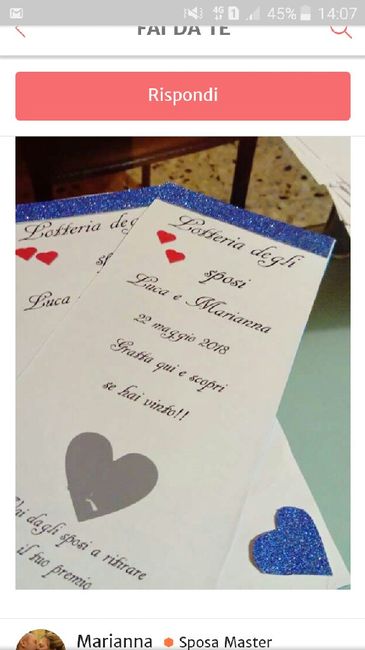 4G 1 45% 14:07
FAI DA TE
Rispondi
Lotteria deg
sp
Luca
Lotteria degli
sposi
Luca e Marianna
22 maggio 2018
Gratta qui e scopri
se hai vinto!!
dagli sposi a ritirare
il tuo premio
Marianna Sposa Master